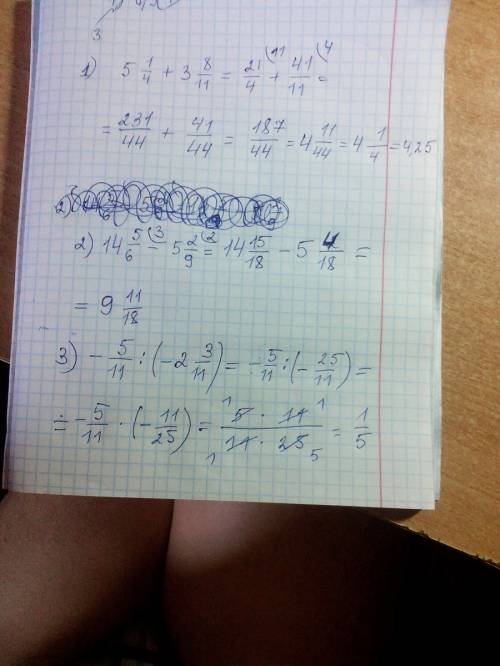 3
1) 5 1/4 + 3 8/11 = 21/4 (11 + 41/11 (4 =
= 231/44 + 41/44 = 187/44 = 4 11/44 = 4 1/4 = 4,25
2)
2) 14 5/6 (3 − 5 2/9 (2 = 14 15/18 − 5 4/18 =
= 9 11/18
3) − 5/11 : (−2 3/11) = − 5/11 : (− 25/11) =
= − 5/11 · (− 11/25) = 5 · 11 / 11 · 25 = 1/5